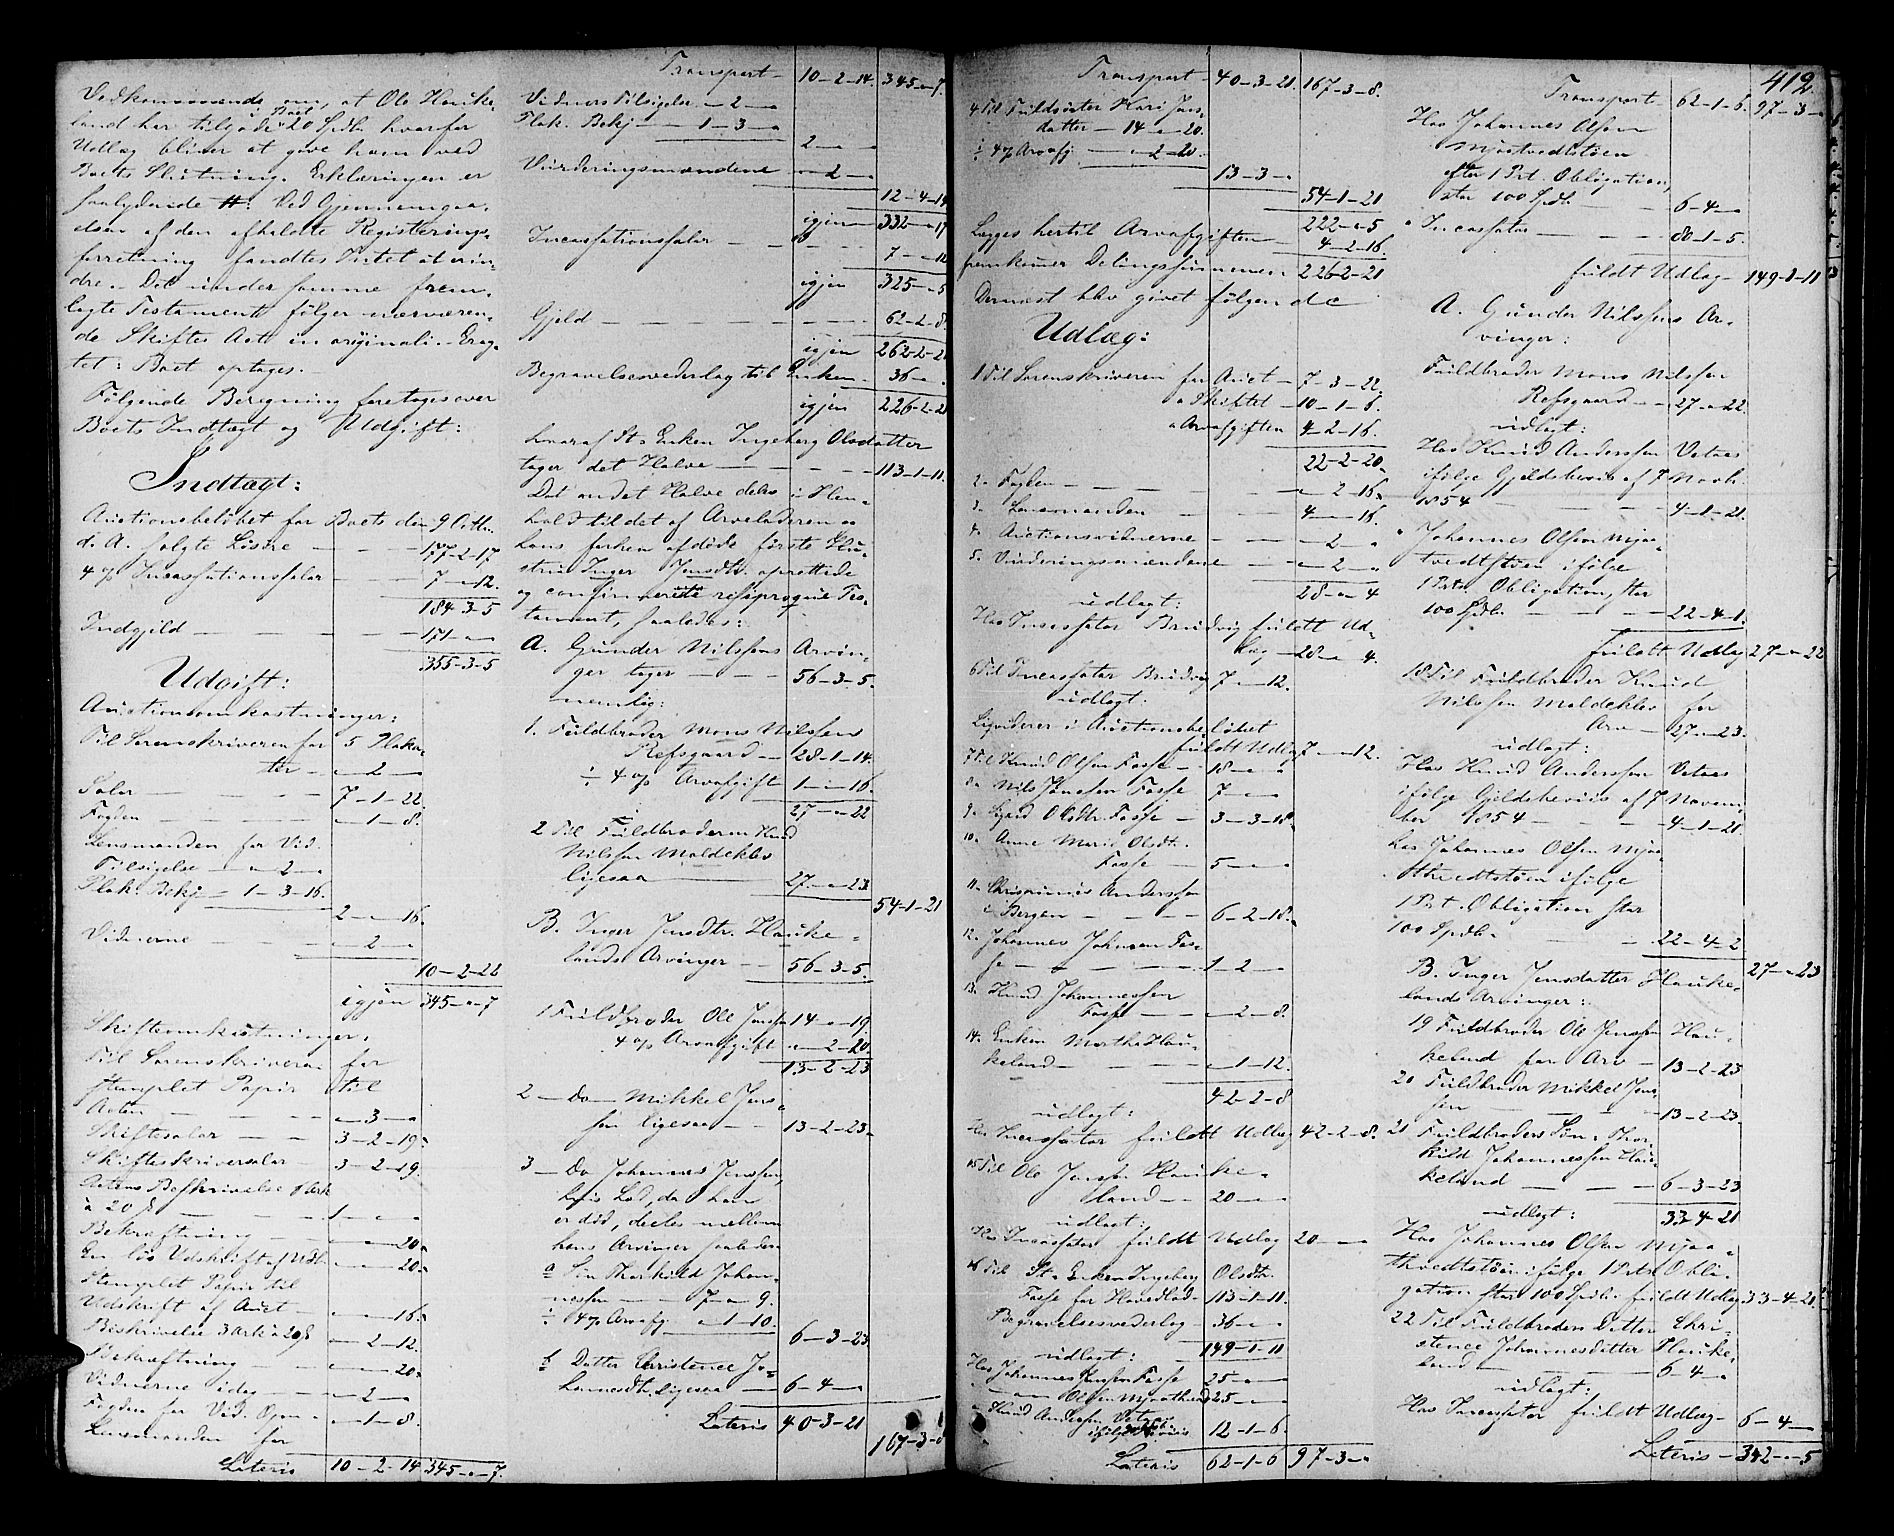 Vedkommende om, at Ole Hauke-
land har tilgode i Boet 20 Spdlr hvorfor
Udlæg bliver at give ham ved
Boets Slutning. Erklæringen er
saalydende #: Ved Gjennemgaa-
elsen af den afholdte Registerings-
forretning fandtes Intet at erin-
dre. Det under samme frem-
lagte Testament følger nærværen-
de Skiftes Act in originali. Erag-
tet: Boet optages.
Følgende Beregning foretages over
Boets Indtægt og Udgift:
Indtægt:
Auctionsbeløbet for Boets den 9 Octbr.
d. A. solgte Løsøre — 177-2-17
4 op Incassationssalær — 7-"-12.
184-3-5
Indgjeld — 171-"-"
355-3-5
Udgift:
Auctionsomkostninger:
Til Sorenskriveren for 5 Plaka-
ter — "-2-"
Salær — 7-1-22.
Fogden — "-1-8.
Lensmanden for Vid.
Tilsigelse — "-2-"
Plak. Bekj — 1-3-16.
2-"-16.
Vidnerne — "-2-"
10-2-22
igjen 345-"-7
Skifteomkostninger:
Til Sorenskriveren for
stemplet Papir til
Acten — "-3-"
Skiftesalær — 3-2-19.
Skifteskriversalær — 3-2-19.
Actens Beskrivelse
à 20 ß — 1-"-"
Bekræftning — "-"-20.
En løs Udskrift af
Stemplet Papir til
Udskrift af Auct — "-"-16.
Beskrivelse 3 Ark à 20 ß — "-2-12.
Bekræftning — "-"-20.
Vidnerne idag — "-2-"
Fogden for Vid. Opn. — "-1-8.
Lensmanden for
Lateris 10-2-14 345-"-7.
Transport — 10-2-14. 345-"-7.
Vidners Tilsigelse — 2-"
Plak. Bekj — 1-3-"
2-"-"
Vurderingsmændene "-2-"
12-4-14
igjen 332-"-17
Incassationssalær — 7-"-12
igjen 325-"-5
Gjeld — 62-2-8.
igjen 262-2-21
Begravelsesvederlag til Enken — 36-"-"
igjen 226-2-21
hvoraf St. Enken Ingeborg Olsdatter
tager det Halve — 113-1-11.
Det andet Halve deles i Hen-
hold til det af Arveladeren og
hans forhen afdøde første Hu-
stru Inger Jensdtr. oprettede
og confirmerede resiproque Tes-
tament, saaledes:
A. Gunder Nilssens Arvin-
ger tager — 56-3-5.
nemlig:
1. Fuldbroder Mons Nilssen
Refsgaard — 28-1-14.
÷ 4 op Arvafgift 1-"-16.
27-"-22
2 Til Fuldbroderen Knud
Nilssen Moldekles
ligesaa — 27-"-23
54-1-21
B. Inger Jensdtr. Hauke-
lands Arvinger — 56-3-5.
1 Fuldbroder Ole Jenssen 14-"-19.
4 op Arvafgift "-2-20
13-2-23
2 — Do — Mikkel Jens-
sen ligesaa — 13-2-23.
3 — Do Johannes Jenssen,
hvis Lod, da han
er død, deles mellem
hans Arvinger saaledes
a Søn Thorkild Johan-
nessen — 7-"-9.
÷ 4 op Arvafg. "-1-10.
6-3-23
b Datter Christence Jo-
hannesdtr. ligesaa — 6-4-"
Lateris 40-3-21
167-3-8
412
Transport — 40-3-21. 167-3-8.
4 Til Fuldsøster Kari Jens-
datter — 14-"-20.
÷ 4 op Arvafg — "-2-20.
13-3-"
54-1-21
222-"-5
Lægges hertil Arvafgiften — 4-2-16.
fremkommer Delingssummen 226-2-21
Dernæst blev givet følgende
Udlæg:
1 Til Sorenskriveren for Auct — 7-3-22.
" Skiftet — 10-1-6.
" Arvafgiften 4-2-16.
22-2-20.
2. Fogden — "-2-16.
3. Lensmanden — 4-"-16.
4. Auctionsvidnerne — "-2-"
5. Vurderingsmændene — "-2-"
28-"-4
udlagt:
Hos Incassator Brudvig fuldt Ud-
læg — 28-"-4.
6 Til Incassator Brudvig 7-"-12.
udlagt:
Liqviderer i Auctionsbeløbet
fuldt Udlæg 7-"-12.
7 Til Knud Olsen Fosse — 18-"-"
8. Nils Jansen Fosse 7-"-"
9. Sigrid Olsdtr. Fosse — 3-3-18.
10. Anne Marie Olsdtr.
Fosse — 5-"-"
11. Anderssen
i Bergen — 6-2-18.
12. Johannes Johnsen Fos-
se — 1-2-"
13. Knud Johannessen
Fosse — "-2-8.
14. Enken Marthe Hau-
keland — "-1-12.
42-2-8
udlagt:
Hos Incassator fuldt Udlæg 42-2-8.
15 Til Ole Jenssen Hauke-
land — 20-"-"
udlagt:
Hos Incassator fuldt Udlæg 20-"-"
16 Til St. Enken Ingeborg Olsdtr.
Fosse for Hovedlod — 113-1-11.
Begravelsesvederlag — 36-"-"
149-1-11
udlagt:
Hos Johannes Jensen Fosse 25-"-"
" — Olsen Mjøsthved 25-"-"
" Knud Anderssen Vetaas
ifølge Bevis 12-1-6.
Lateris 62-1-6 97-3-"
Transport — 62-1-6. 97-3-"
Hos Johannes Olsen
Mjøstvedtstøen
efter 1 Prt. Obligation,
stor 100 Spdlr — 6-4-"
" Incassator — 80-1-5.
fuldt Udlæg — 149-1-11
A. Gunder Nilssens Ar-
vinger:
Fuldbroder Mons Nilssen
Refsgaard — 27-"-22.
udlagt:
Hos Knud Anderssen Vetaas
ifølge Gjeldsbevis af 7 Novb.
1854 — 4-1-21.
" Johannes Olsen Mjøs-
tvedtstøen ifølge
1 Prt. Obligation, stor
100 Spdlr — 22-4-1.
fuldt Udlæg 27-"-22
18 Til Fuldbroder Knud
Nilssen Moldekles for
Arv — 27-"-23.
udlagt:
Hos Knud Anderssen Vetaas
ifølge Gjeldsbevis af 7 Novem-
ber 1854 — 4-1-21.
hos Johannes Olsen Mjøs-
thvedtstøen ifølge
1 Prt. Obligation stor
100 Spdlr — 22-4-2
27-"-23
B. Inger Jensdatter Hauke-
lands Arvinger:
19 Fuldbroder Ole Jenssen Hau-
keland for Arv — 13-2-23
20 Fuldbroder Mikkel Jens-
sen — 13-2-23.
21 Fuldbroders Søn Thor-
kild Johannessen Hau-
keland — 6-3-23
33-4-21
udlagt:
Hos Johannes Olsen Mjøs-
thvedtstøen ifølge 1 Prt. Obli-
gation stor 100 Spdlr fuldt Udlæg 33-4-21.
22 Til Fuldbroders Datter Chri-
stence Johannesdatter Hauke-
land — 6-4-"
udlagt:
Hos Incassator fuldt Udlæg — 6-4-"
Lateris — 342-"-5